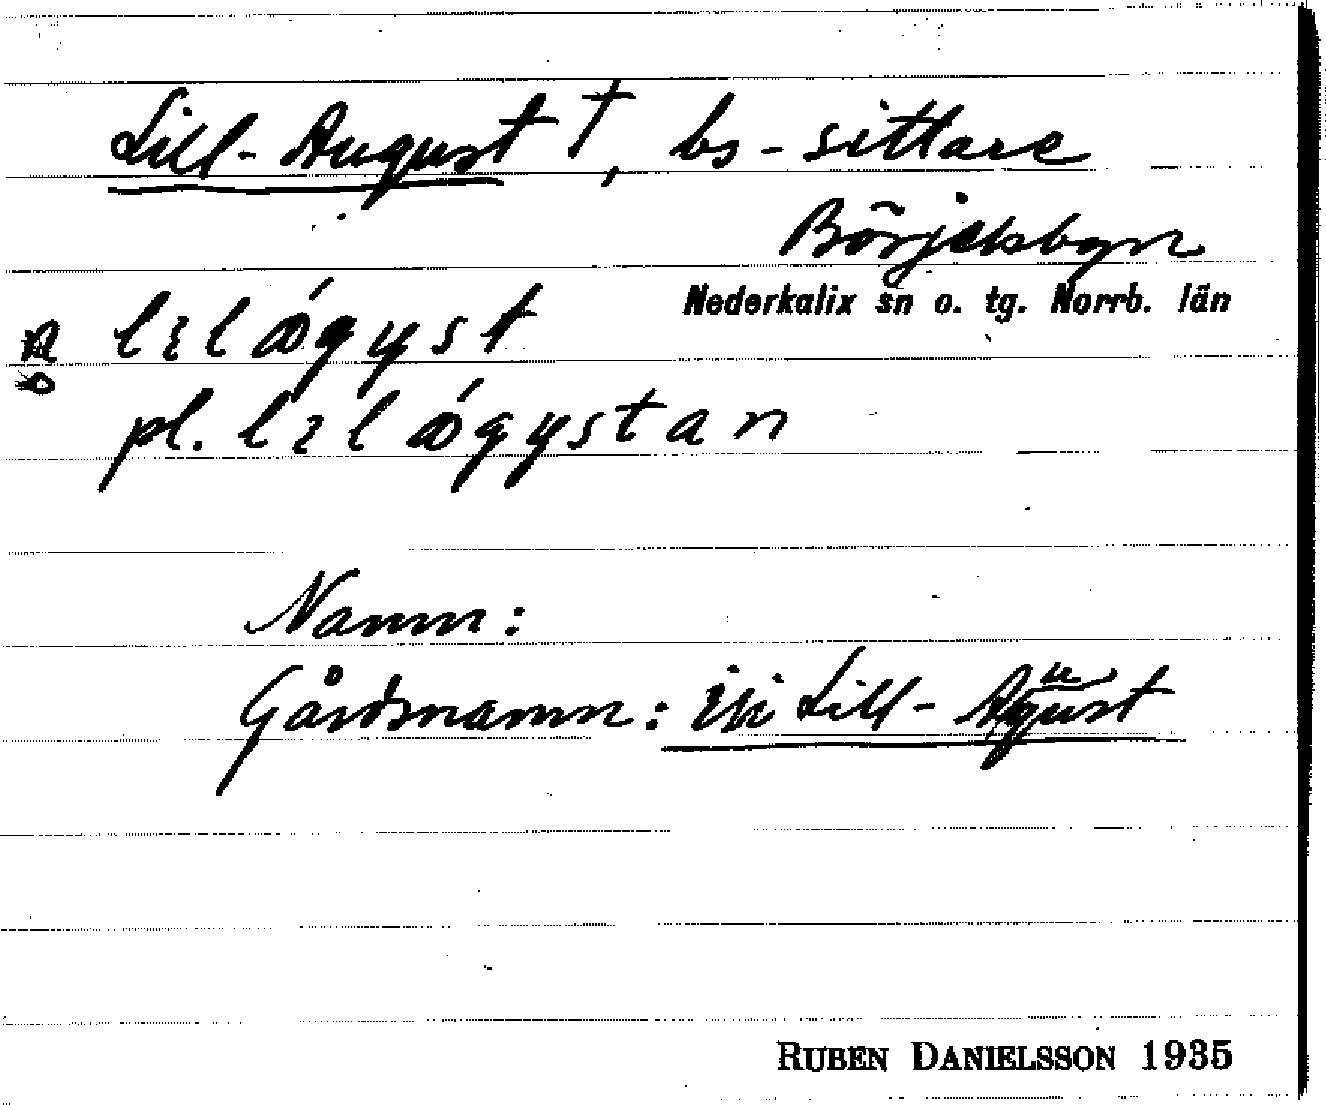 Lill-August †, bs-sittare
Börjelsbyn
Nederkalix sn o. tg. Norrb. län
lılǿgyst
pl. lılǿgystan
Namn:
Gårdsnamn: Lill-August
RUBEN DANIELSSON 1935